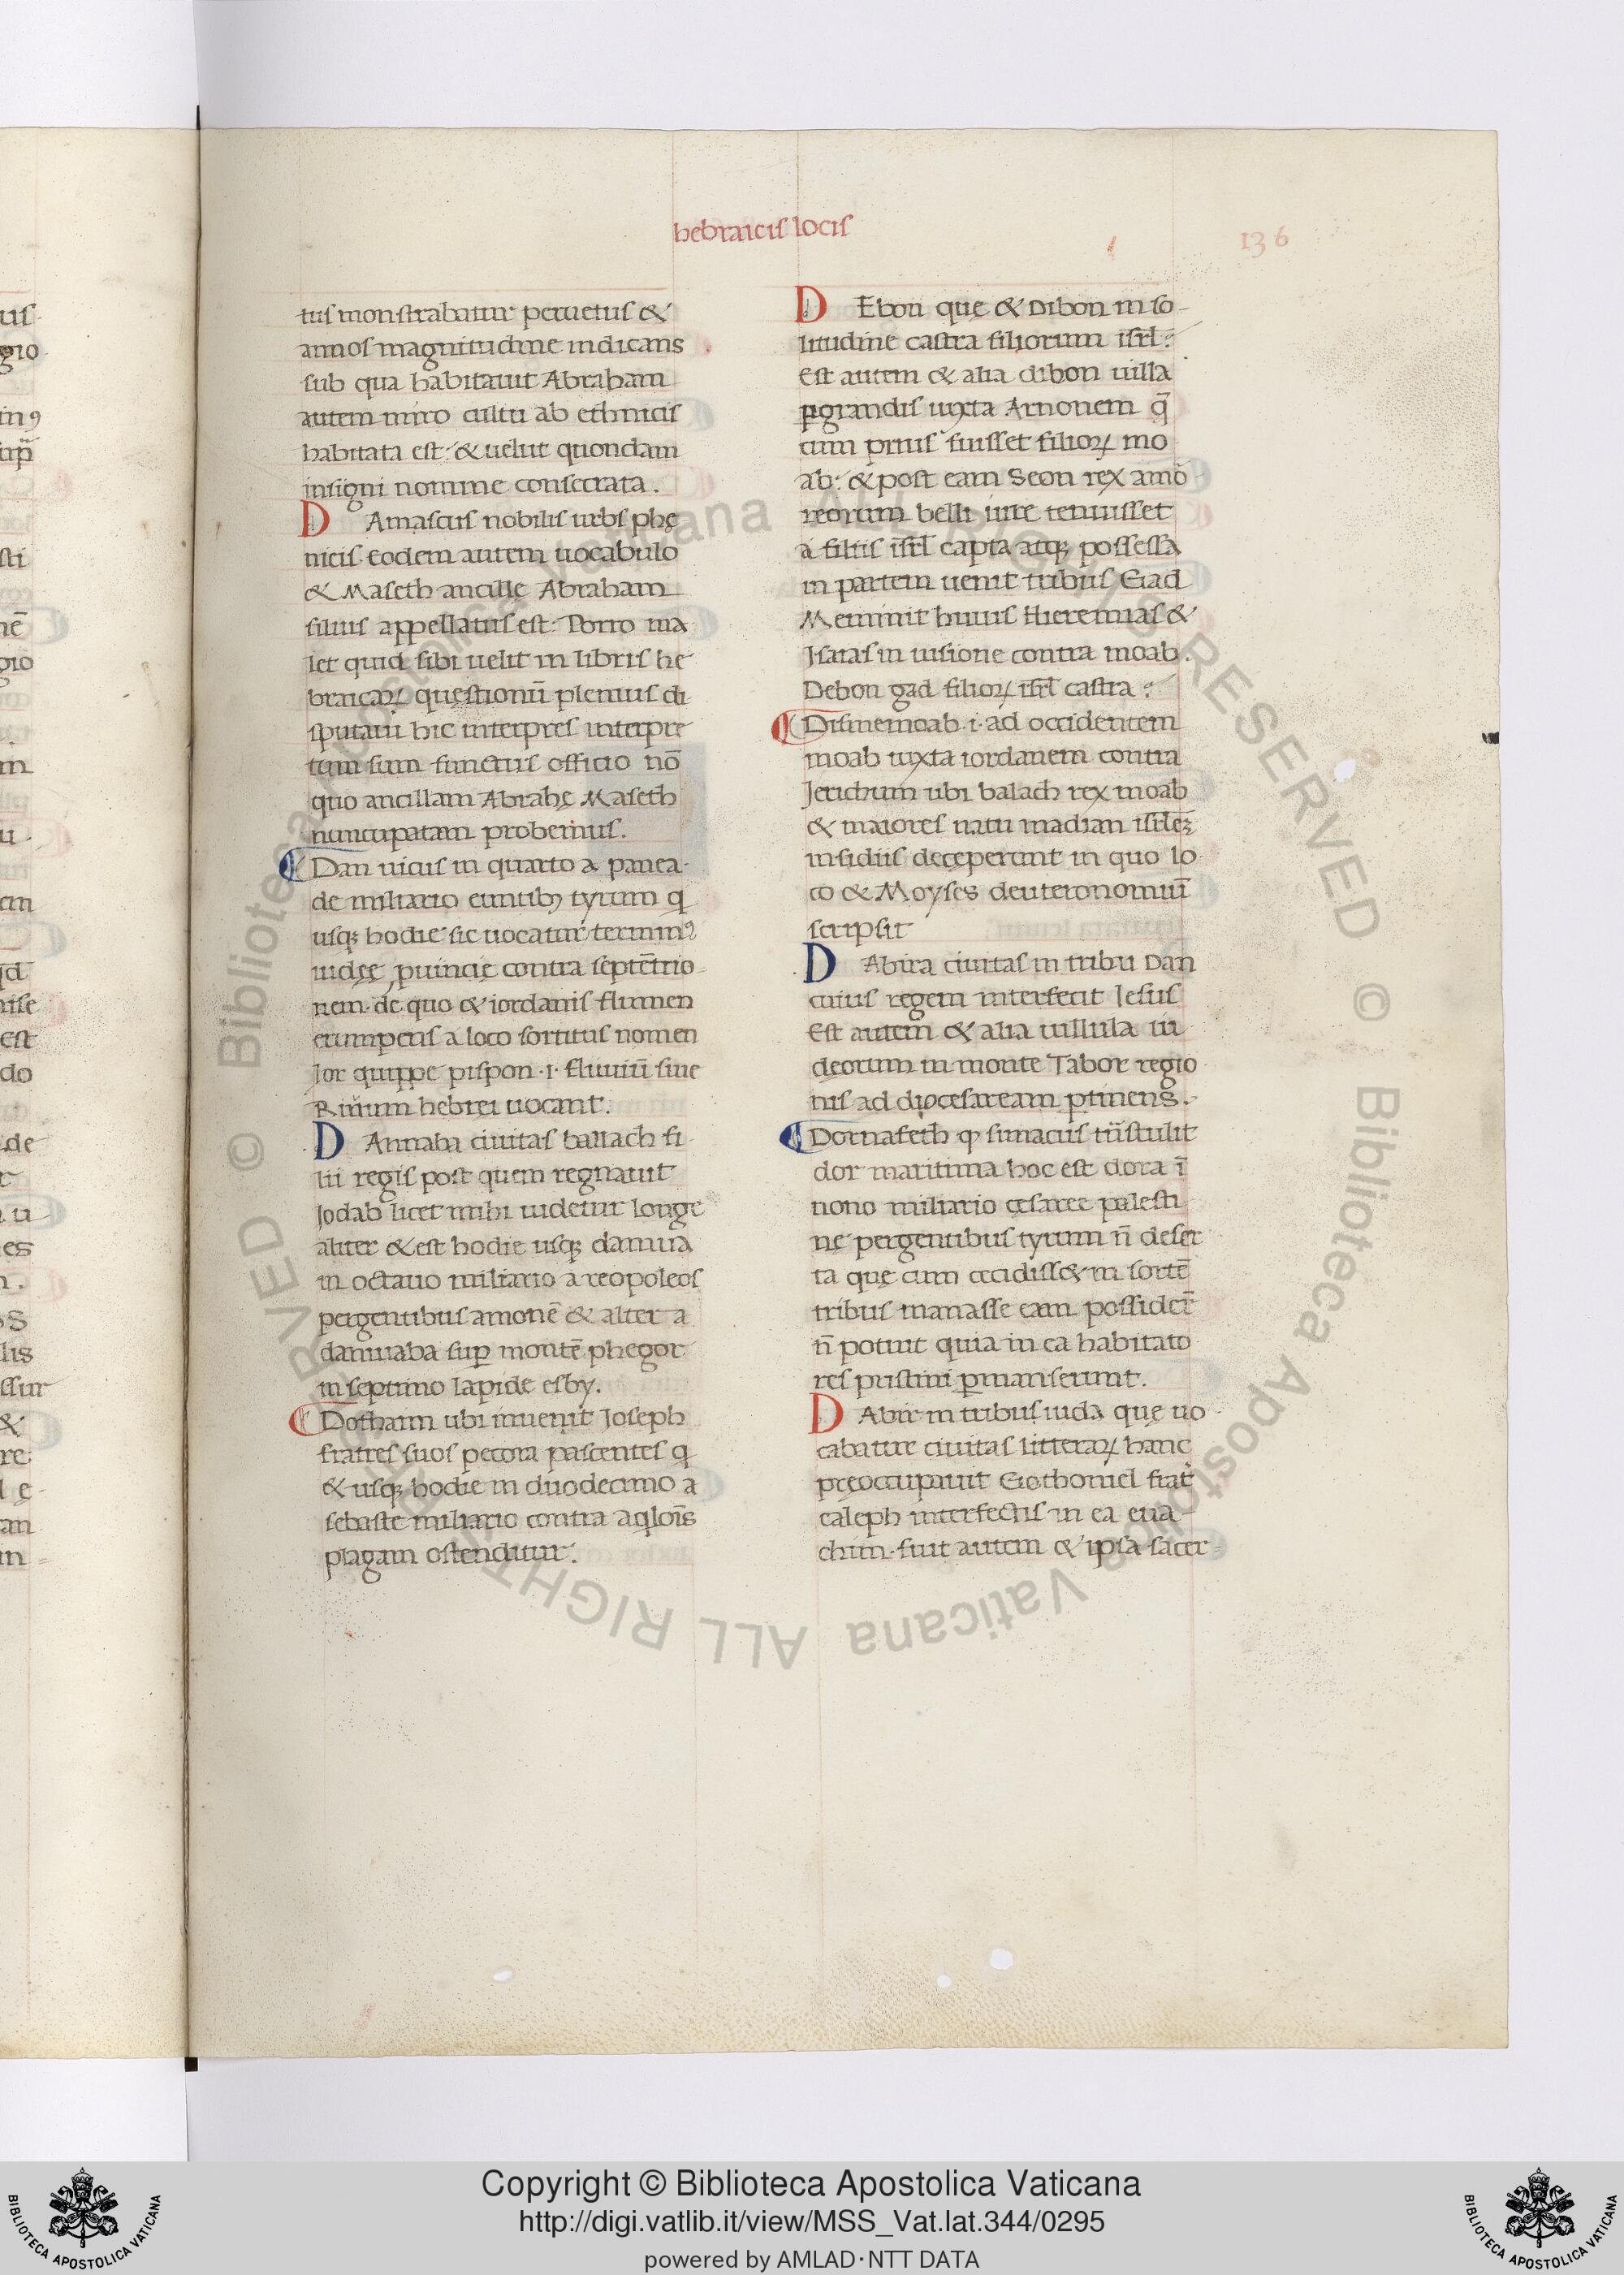 hebraicis locis
136
tus monstrabatur peruetus &
annos magnitudine indicans
sub qua habitauit Abraham
autem miro cultu ab ethnicis
habitata est: & uelut quondam
insigni nomine consecrata.
DAmascus nobilis urbs phę
nicis eodem autem uocabulo
& Maseth ancillę Abraham
filius appellatus est: Porro ma
let quid sibi uelit in libris he
braicaꝝ questionū plenius di
sputaui hic interpres interpre
tum sum functus officio nō
quo ancillam Abrahę Maseth
nuncupatam probemus.
Dan uicus in quarto a panea-
de miliario euntibꝫ tyrum q
usqꝫ hodie sic uocatur terminꝰ
iudęę puincię contra septētrio-
nem. de quo & iordanis flumen
erumpens a loco sortitus nomen
Ior quippe pispon .i. fluuiū siue
Riuum hebrei uocant.
DAnnaba ciuitas ballach fi-
lii regis post quem regnauit
Iodab licet mihi uidetur longe
aliter & est hodie usqꝫ damua
in octauo miliario areopoleos
pergentibus arnonē & alter a
damuaba suꝑ montē phegor
in septimo lapide esby.
Dothaim ubi inuenit Ioseph
fratres suos pecora pascentes q
& usqꝫ hodie in duodecimo a
sebaste miliario contra aqlois
plagam ostenditur.
DEbon quę & Dibon in so-
litudine castra filiorum isrl:
Est autem & alia dibon uilla
ꝑgrandis iuxta Arnonem q̄
cum prius fuisset filioꝝ mo
ab: & post eam Seon rex amo
reorum belli iure tenuisset
a filiis isrl capta atqꝫ possessa
in partem uenit tribus Gad
Meminit huius Hieremias &
Isaias in uisione contra moab.
Debon gad filioꝝ isrl castra:
Disme moab .i. ad occidentem
moab iuxta iordanem contra
Jerichum ubi balach rex moab
& maiores natu madian isrl
insidiis deceperunt in quo lo
co & Moyses deuteronomiū
scripsit
DAbira ciuitas in tribu Dan
cuius regem interfecit Iesus
Est autem & alia uillula iu
deorum in monte Tabor regio
nis ad diocesaream ꝑtinens.
Dornafeth ꝙ simacus trāstulit
dor maritima hoc est dora ī
nono miliario cęsaree palesti
nę pergentibus tyrum n̄ deser
ta quę cum cecidiss& in sortē
tribus manasse eam possider̄
n̄ potuit quia in ea habitato
res pristini ꝑmanserunt.
DAbir in tribus iuda quę uo
cabature ciuitas litteraꝝ hanc
pręoccupauit Gothoniel frat
caleph interfectis in ea ena
chim. fuit autem & ipsa sacer-
Copyright © Biblioteca Apostolica Vaticana
http://digi.vatlib.it/view/MSS_Vat.lat.344/0295
powered by AMLAD·NTT DATA
BIBLIOTECA APOSTOLICA VATICANA
BIBLIOTECA APOSTOLICA VATICANA